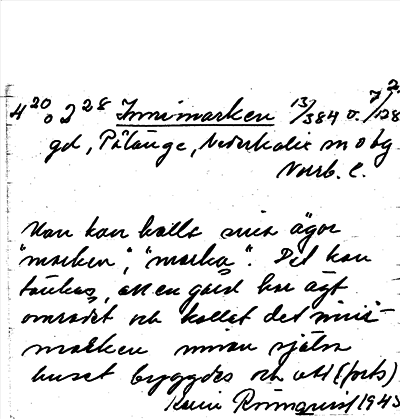 4 20 o 2 28 Innimarken 13/384 o. 7/128
gd, Pålänge, Nederkalix m o bg
Norrb. l.
Man kan kalla sina ägor
"marken", "marka". Det kan
tänkas, att en gård har ägt
området och kallat det inni-
marken innan själva
huset byggdes och att (forts)
Karin Rönnquist 1945